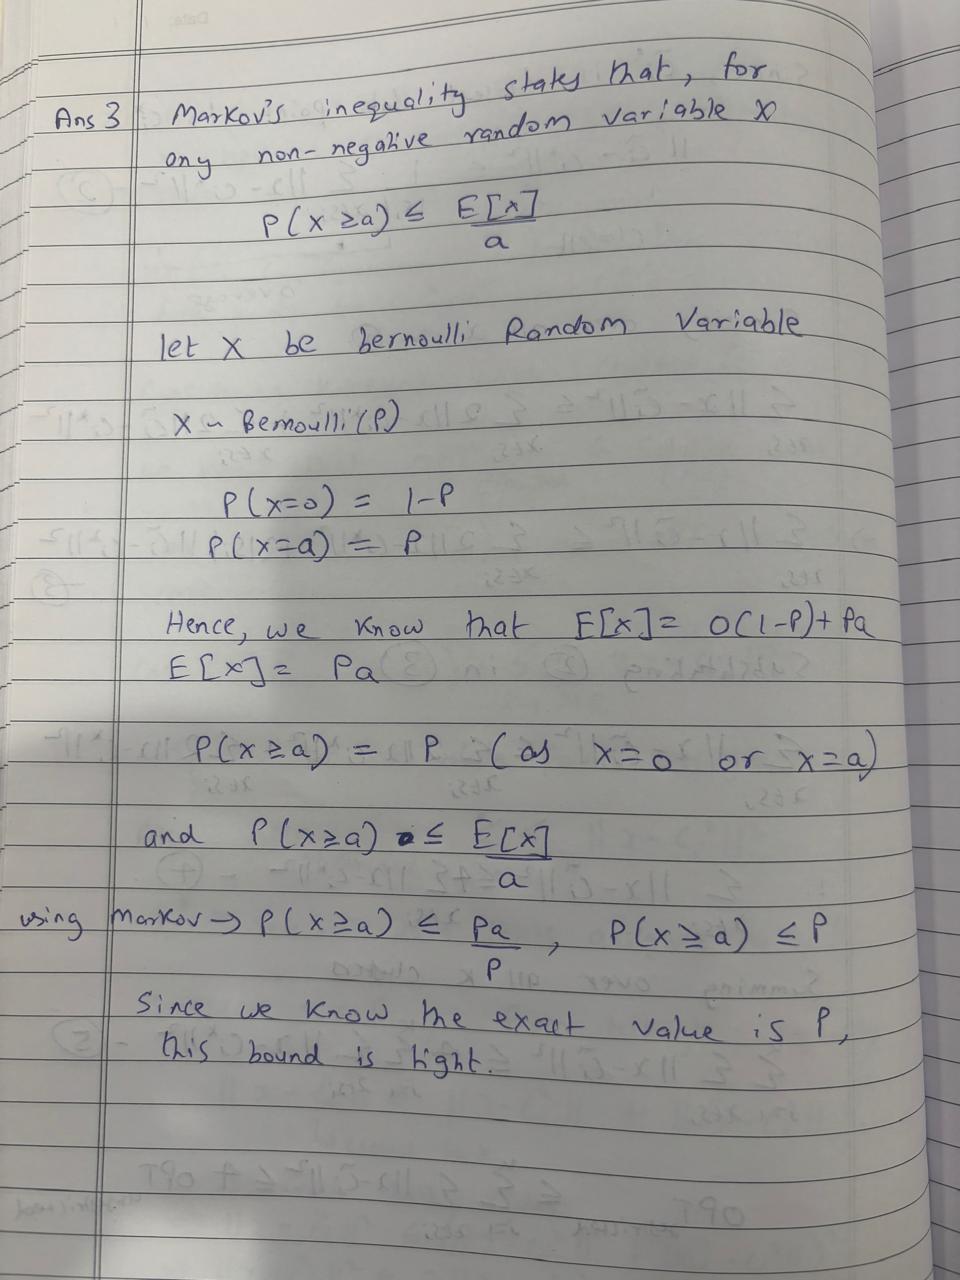 Ans 3 Markov's inequality states that, for
any non-negative random variable X
P(X ≥ a) ≤ E[X]/a
let X be bernoulli Random Variable
X ~ Bernoulli(P)
P(X=0) = 1-P
P(X=a) = P
Hence, we know that E[X] = 0(1-P) + Pa
E[X] = Pa
P(X ≥ a) = P (as X=0 or X=a)
and P(X ≥ a) ≤ E[X]/a
using Markov → P(X ≥ a) ≤ Pa/P, P(X ≥ a) ≤ P
Since we know the exact value is P,
this bound is tight.